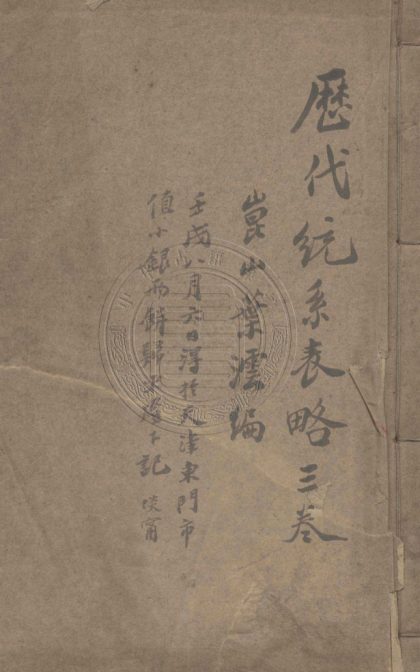 歷代統系表略三卷
崑山葉澐編
壬戌八月六日得於天津東門市
值小銀兩餅歸
記